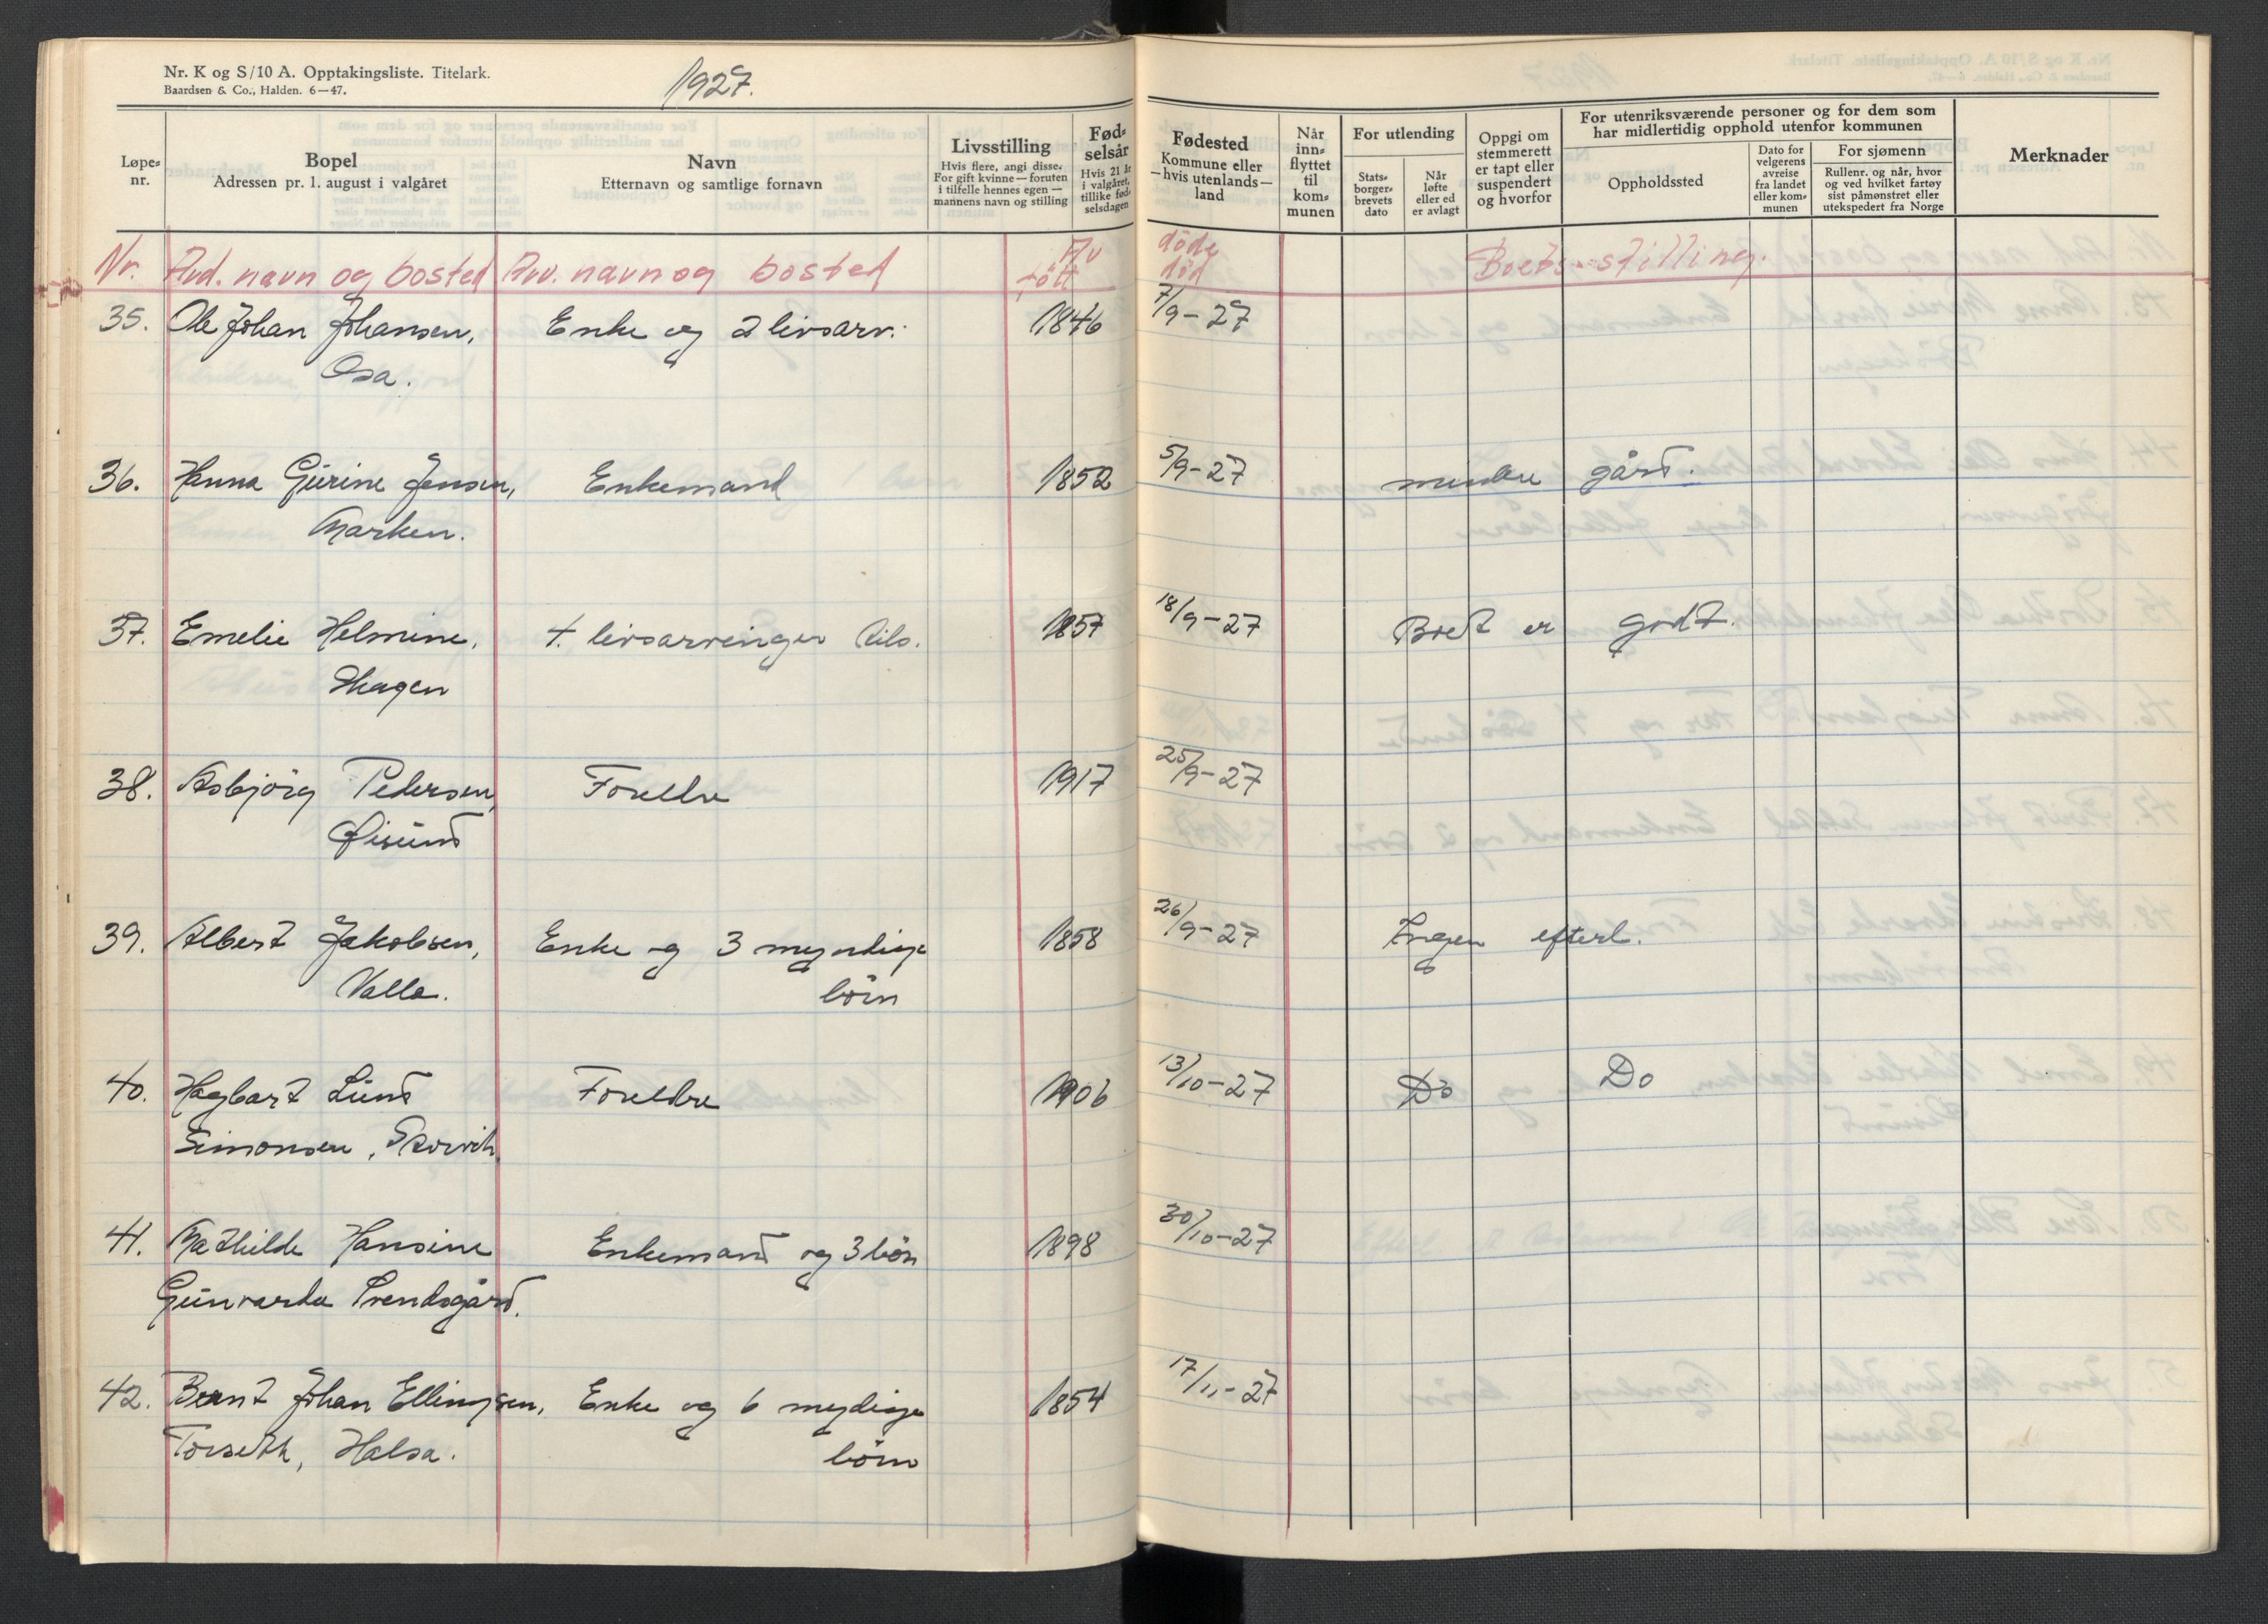 Nr. K og S/10 A. Opptakingsliste. Titelark.
Baardsen & Co., Halden. 6—47.
1927.
Løpe-
nr.
Bopel
Adressen pr. 1. august i valgåret
Navn
Etternavn og samtlige fornavn
Livsstilling
Hvis flere, angi disse.
For gift kvinne — foruten
i tilfelle hennes egen —
mannens navn og stilling
Fød-
selsår
Hvis 21 år
i valgåret,
tillike fød-
selsdagen
Fødested
Kommune eller
— hvis utenlands —
land
Når
inn-
flyttet
til
kom-
munen
For utlending
Stats-
borger-
brevets
dato
Når
løfte
eller ed
er avlagt
Oppgi om
stemmerett
er tapt eller
suspendert
og hvorfor
For utenriksværende personer og for dem som
har midlertidig opphold utenfor kommunen
Oppholdssted
Dato for
velgerens
avreise
fra landet
eller kom-
munen
For sjømenn
Rullenr. og når, hvor
og ved hvilket fartøy
sist påmønstret eller
utekspedert fra Norge
Merknader
Nr. Avd. navn og bosted Arv. navn og bosted Av døde
født død Boets stilling.
35. Ole Johan Johansen, Enke og 2 livsarv. 1846 7/9-27
Osa.
36. Hanna Gurine Jensen, Enkemand 1852 5/9-27 mindre gård.
Marken.
37. Emelie Helmine, 4. livsarvinger 1857 18/9-27 Boet er godt.
Hagen
38. Asbjörg Pedersen, Foreldre 1917 25/9-27
Øisund
39. Albert Jakobsen, Enke og 3 myndige 1858 26/9-27 Ingen efterl.
Valla. börn
40. Hagbart Lund Foreldre 1906 13/10-27 Do Do
Simonsen, Storvik.
41. Mathilde Hansine Enkemand og 3 börn 1898 30/10-27
Gunvarda Svendsgård.
42. Bernt Johan Ellingsen, Enke og 6 mydige 1854 17/11-27
Torseth, Halsa. börn